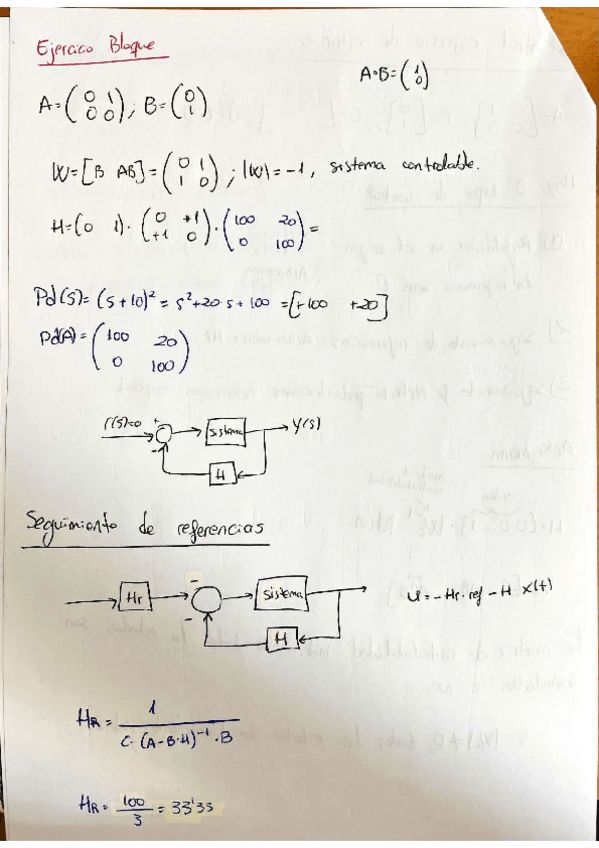 Ejercicio Bloque
A·B=(1 0)
A=(0 1 0 0); B=(0 1)
W=[B AB]=(0 1 1 0); |W|=-1, sistema controlable.
H=(0 1)·(0 +1 +1 0)·(100 20 0 100)=
Pd(s)=(s+10)²=s²+20·s+100=[+100 +20]
Pd(A)=(100 20 0 100)
r(s)=0 + sistema Y(s)
-
H
Seguimiento de referencias
Hr - sistema u=-Hr·ref-H x(t)
-
H
HR= 1 / C·(A-B·H)⁻¹·B
HR= 100/3 = 33'33